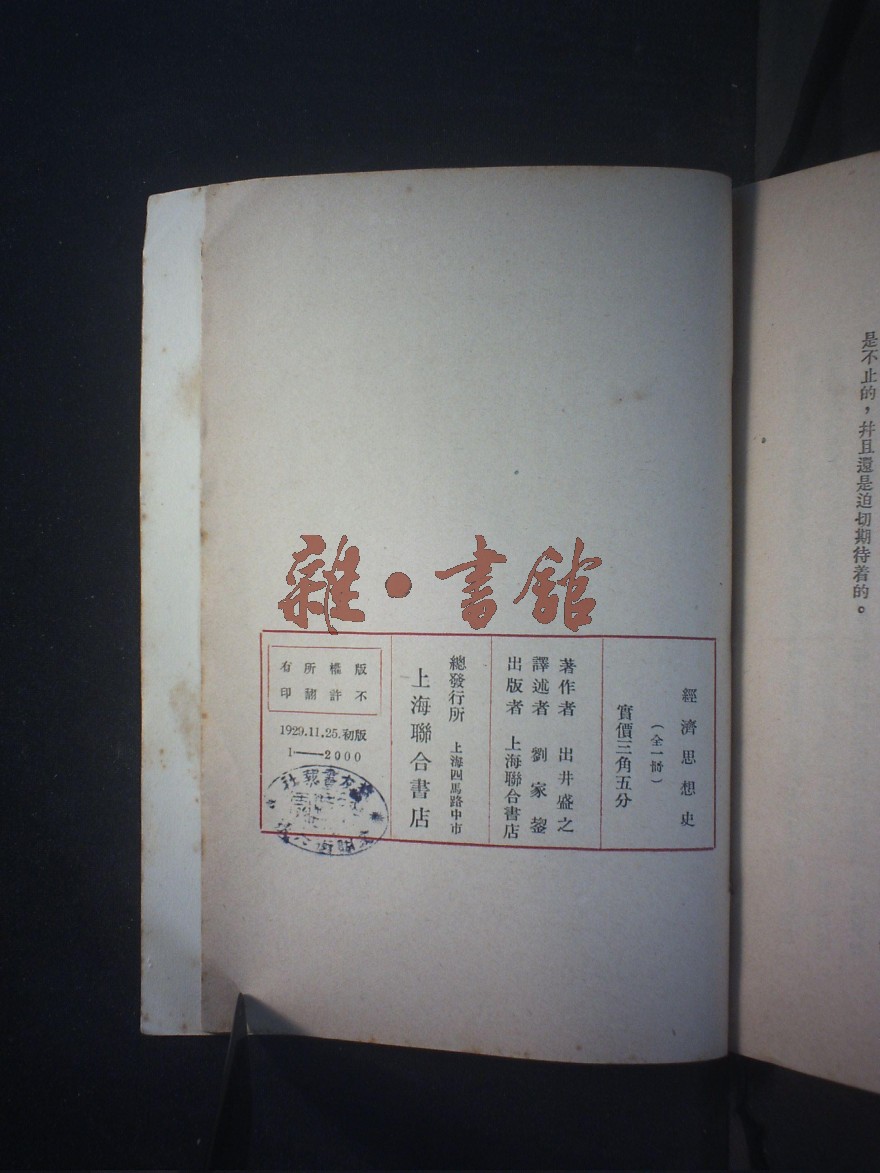 是不止的，幷且還是迫切期待着的。
雜•書館
經濟思想史
（全一冊）
實價三角五分
著作者 出井盛之
譯述者 劉家鋆
出版者 上海聯合書店
總發行所 上海四馬路中市
上海聯合書店
版權所有
不許翻印
1929.11.25.初版
1——2000